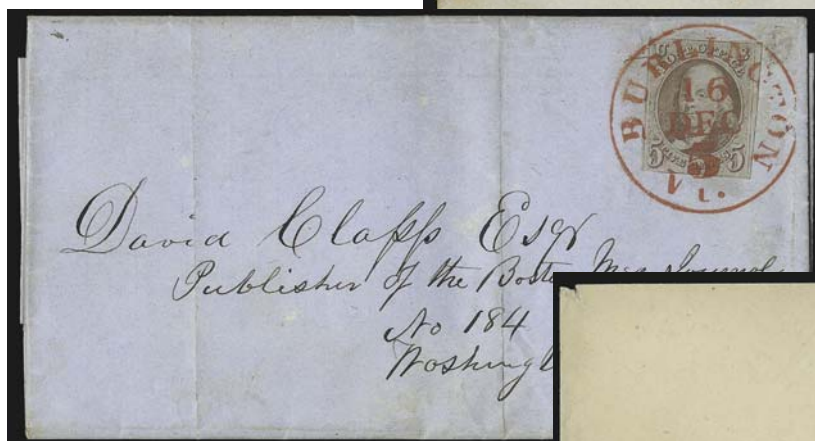 BURLINGTON
16
DEC
5
Vt.
POST OFFICE
5 5
David Clapp Esqr
Publisher of the Boston Med Journal
No 184
Washingt